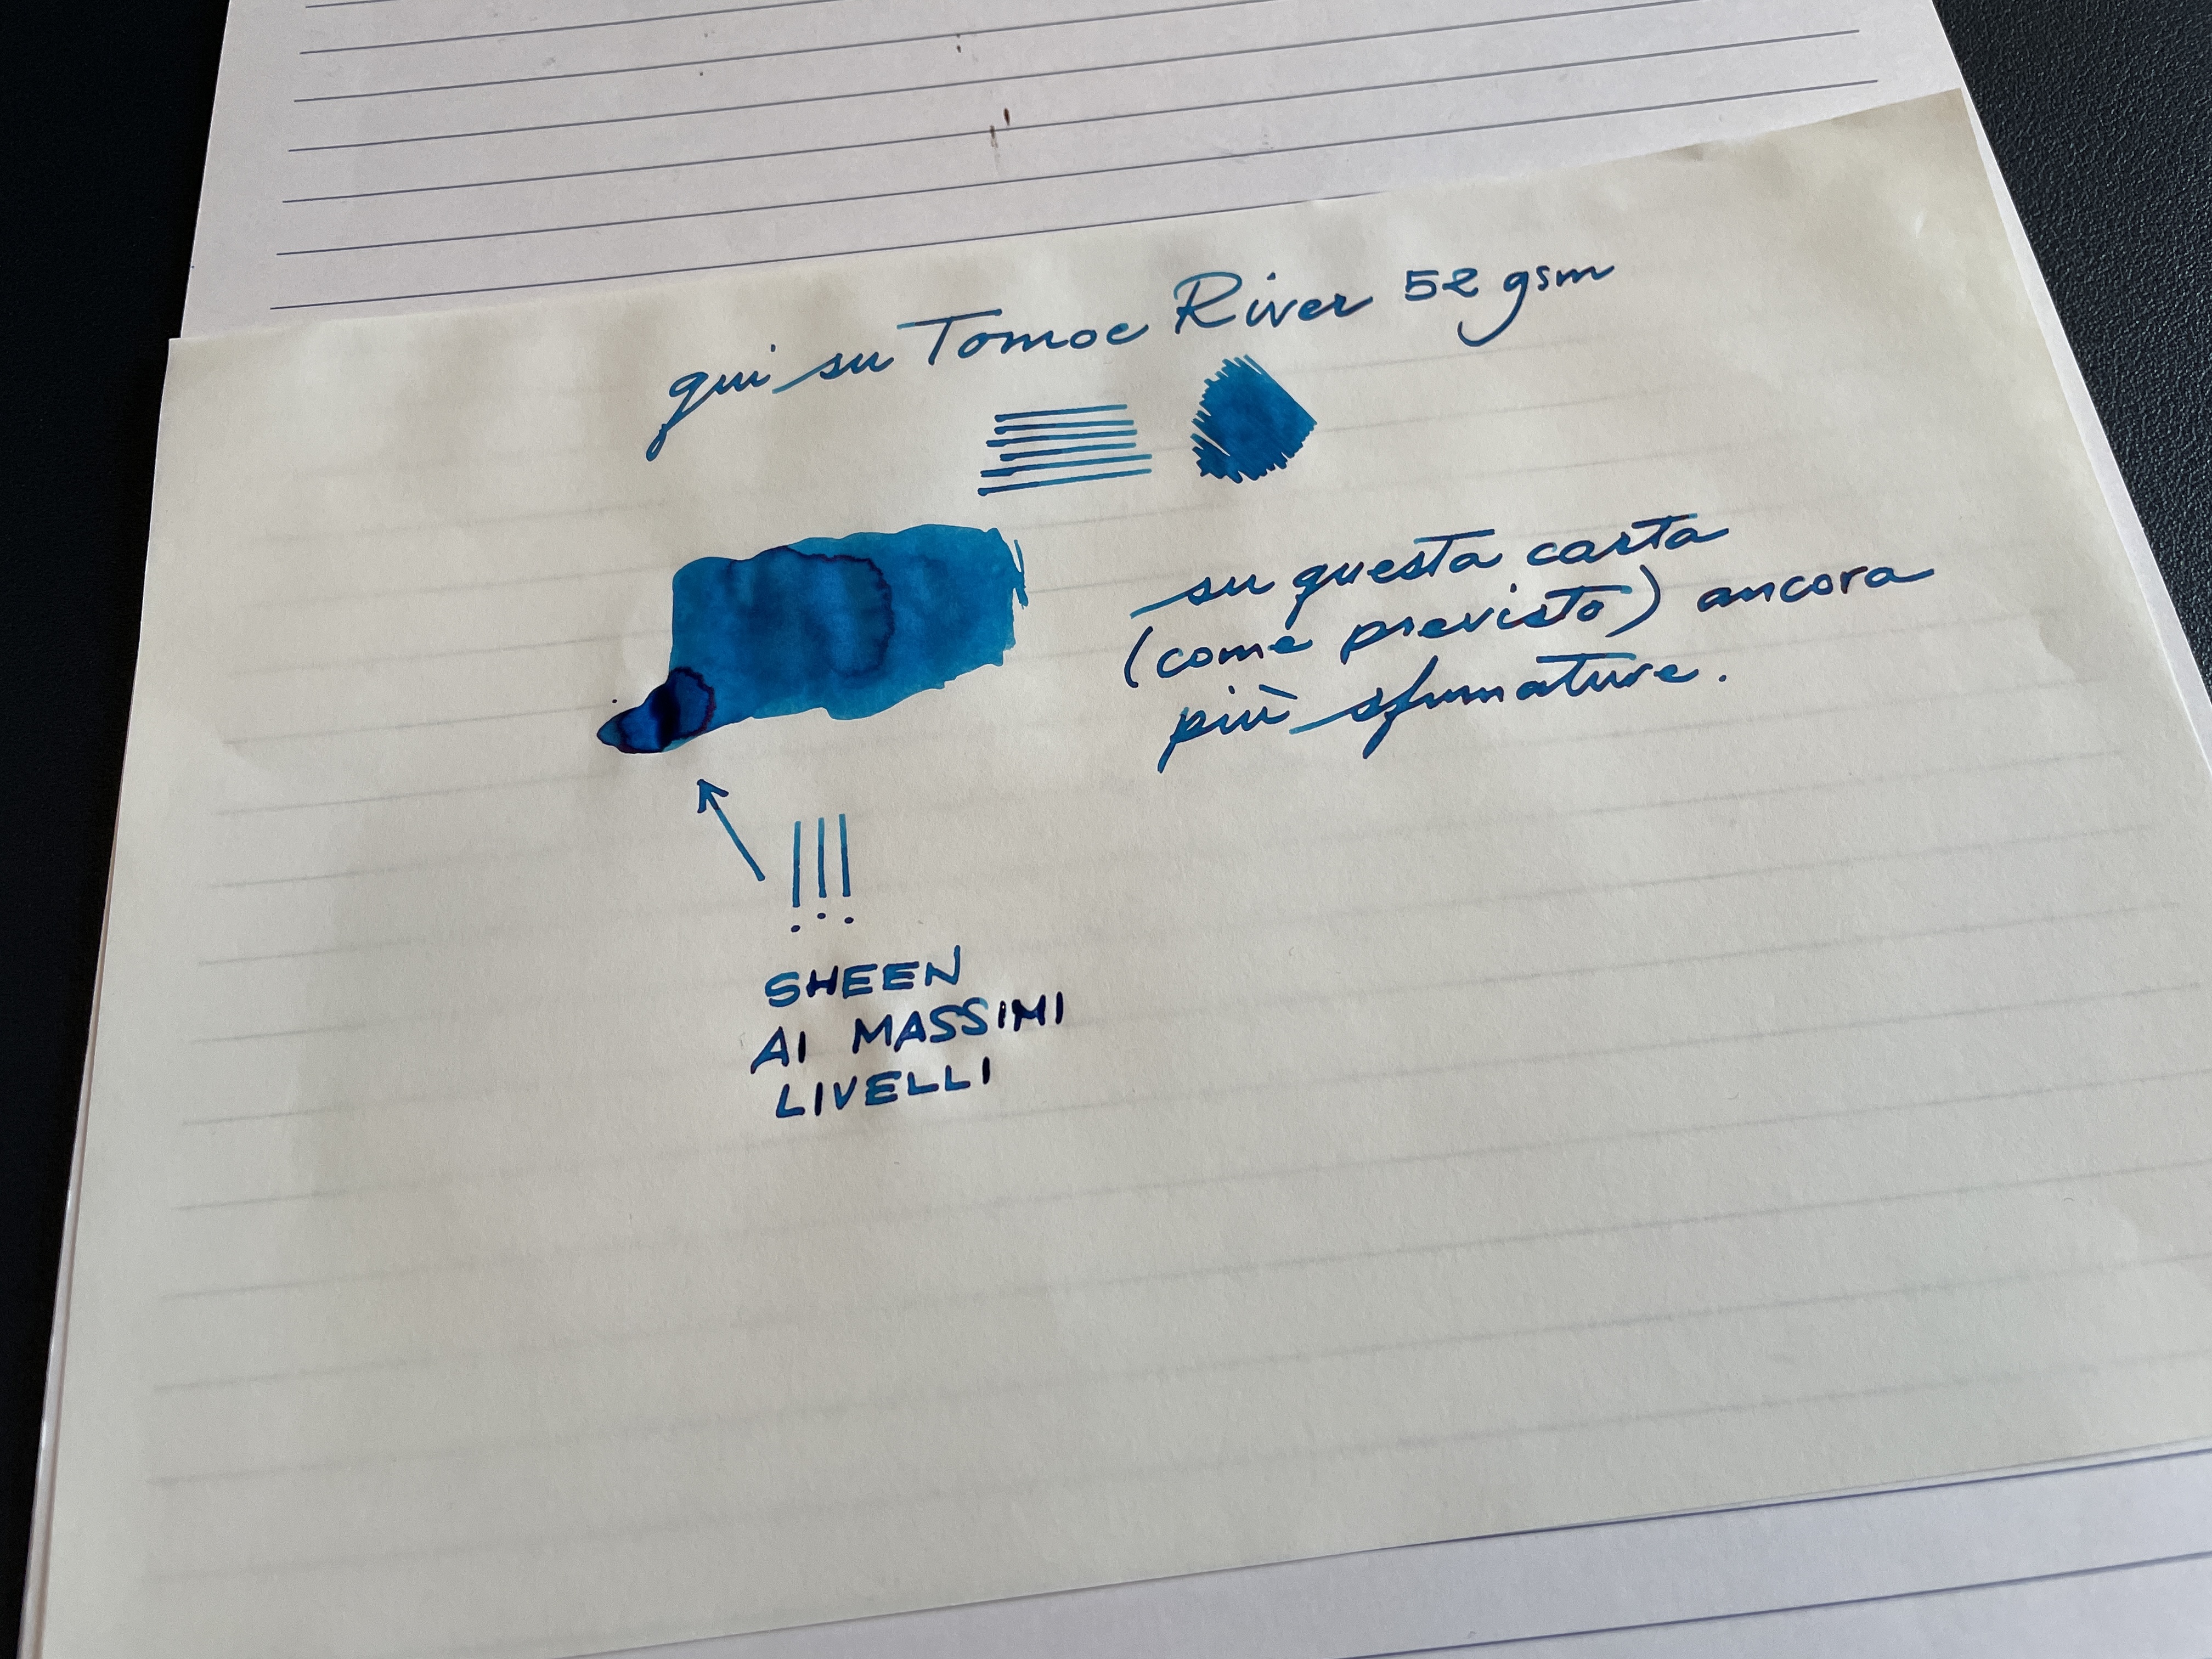 qui su Tomoe River 52 gsm
su questa carta
(come previsto) ancora
più sfumature.
!!!
SHEEN
AI MASSIMI
LIVELLI